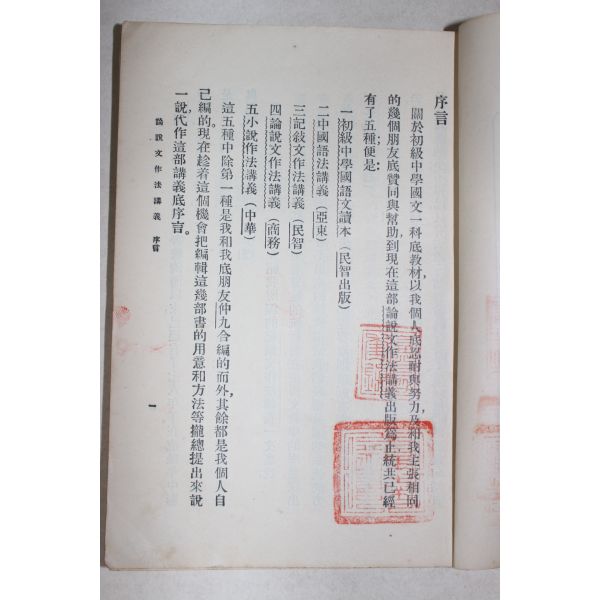 序言
關於初級中學國文一科底教材，以我個人底忍耐與努力，及和我主張相同
的幾個朋友底贊同與幫助，到現在這部論說文作法講義出版為止，統共已經
有了五種；便是：
一初級中學國語文讀本（民智出版）
二中國語法講義（亞東）
三記敍文作法講義（民智）
四論說文作法講義（商務）
五小說作法講義（中華）
這五種中除第一種是我和我底朋友仲九合編的而外，其餘都是我個人自
己編的。現在趁着這個機會把編輯這幾部書的用意和方法等攏總提出來說
一說，代作這部講義底序言。
論說文作法講義　序言
一